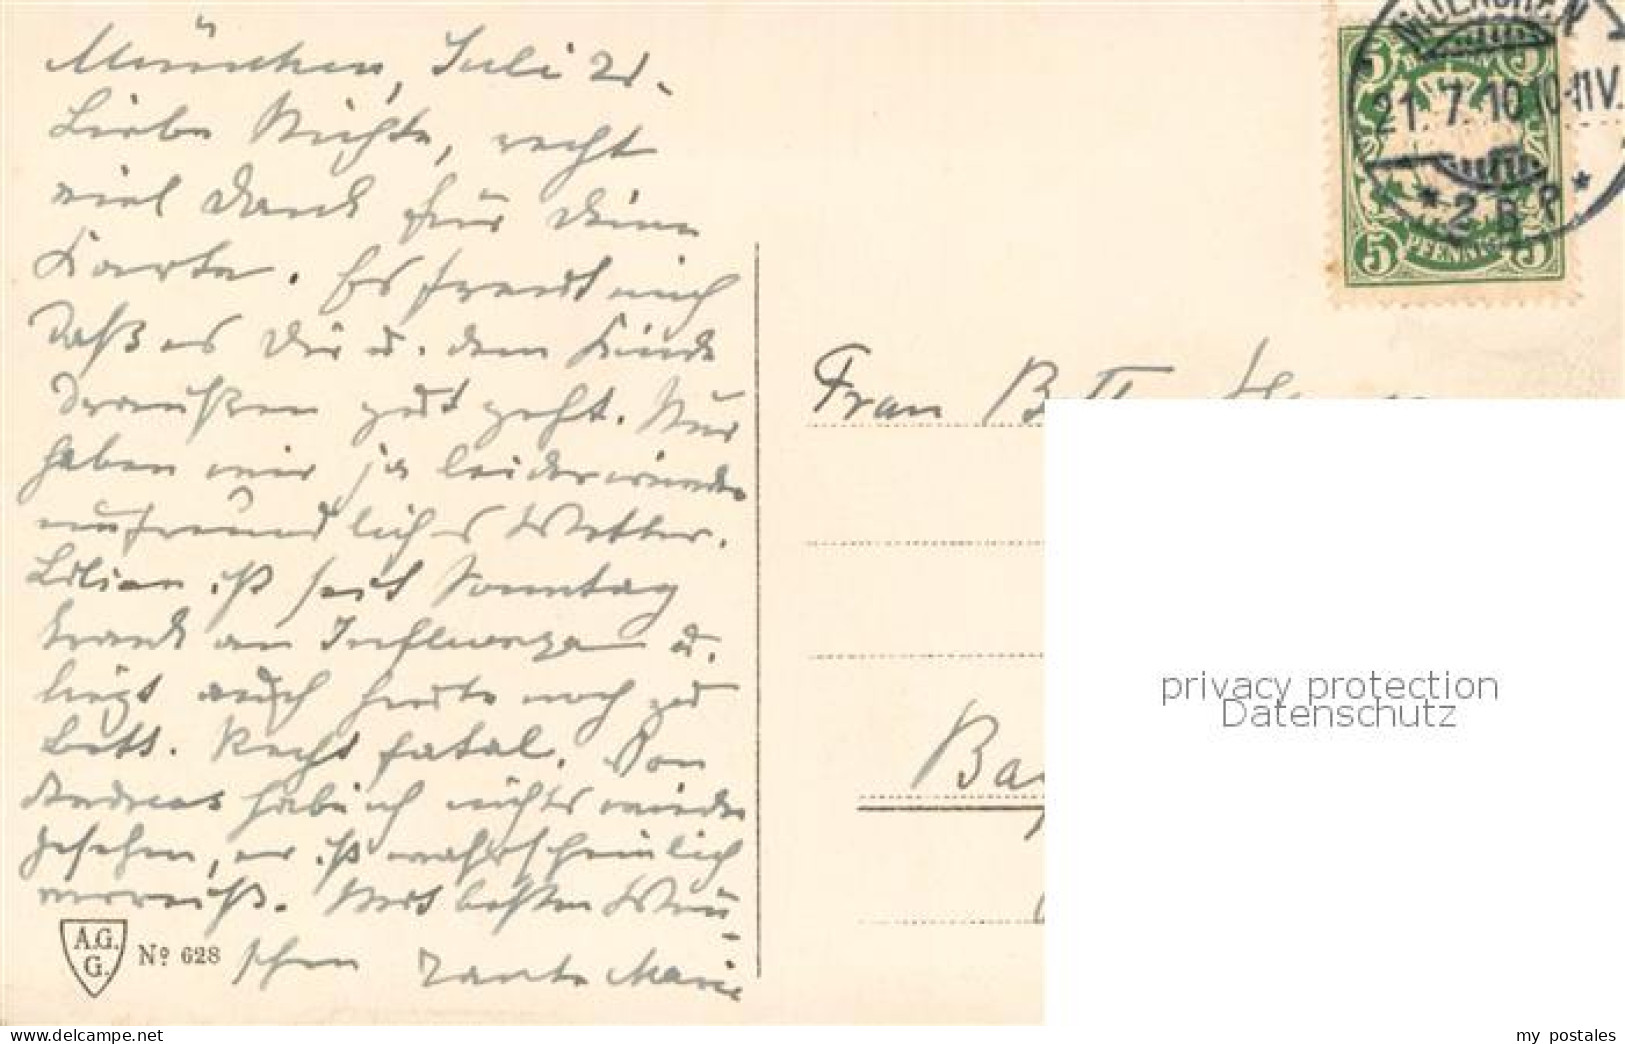 München, Juli 21.
Liebe Nichte, recht
viel Dank für Deine
Karte. Es freut mich
daß es Dir u. dem Kinde
draußen gut geht. Nur
haben wir ja leider wieder
unfreundliches Wetter.
Lilian ist seit Sonntag
krank an Influenza u.
liegt auch heute noch zu
Bett. Recht fatal. Von
Andreas hab ich nichts wieder
gesehen, er ist wahrscheinlich
verreist. Mit besten Wün-
schen Tante Marie
A.G.
G.
Nº 628
MUENCHEN
21. 7. 10 10-11 V.
* 2 B.P. *
5 5
BAYERN
5 PFENNIG 5
Frau
privacy protection
Datenschutz
my postales